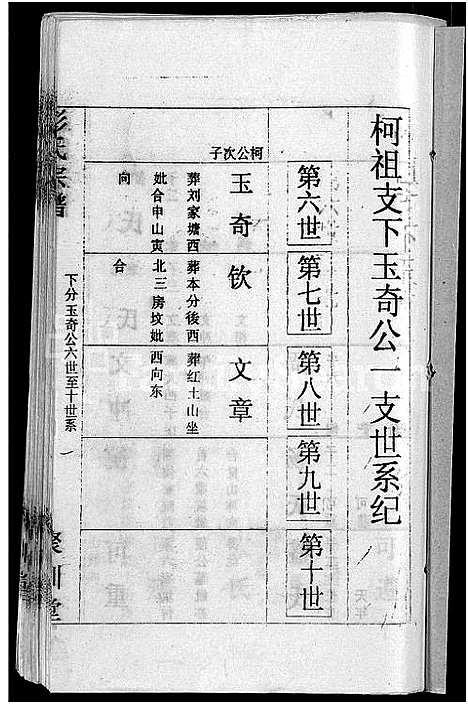 柯祖支下玉奇公一支世系纪
第六世
第七世
第八世
第九世
第十世
柯公次子
玉奇
葬刘家塘西
妣合申山寅
向
钦
葬本分後西
北三房坟妣
合
文章
葬红土山坐
西向东
下分玉奇公六世至十世系 一
彭氏宗谱